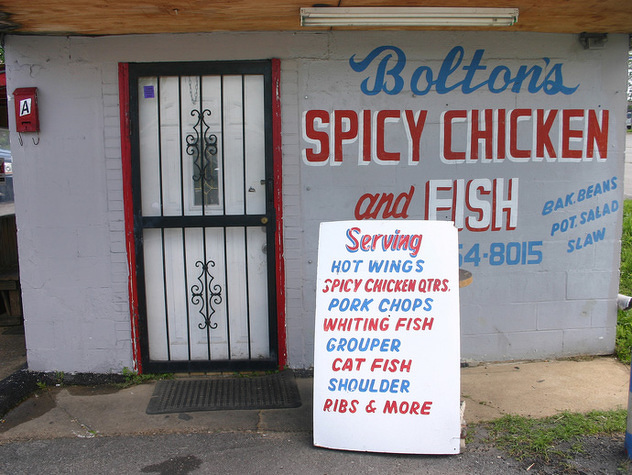 A
Bolton's
SPICY CHICKEN
and FISH
BAK. BEANS
POT. SALAD
SLAW
54-8015
Serving
HOT WINGS
SPICY CHICKEN QTRS.
PORK CHOPS
WHITING FISH
GROUPER
CAT FISH
SHOULDER
RIBS & MORE